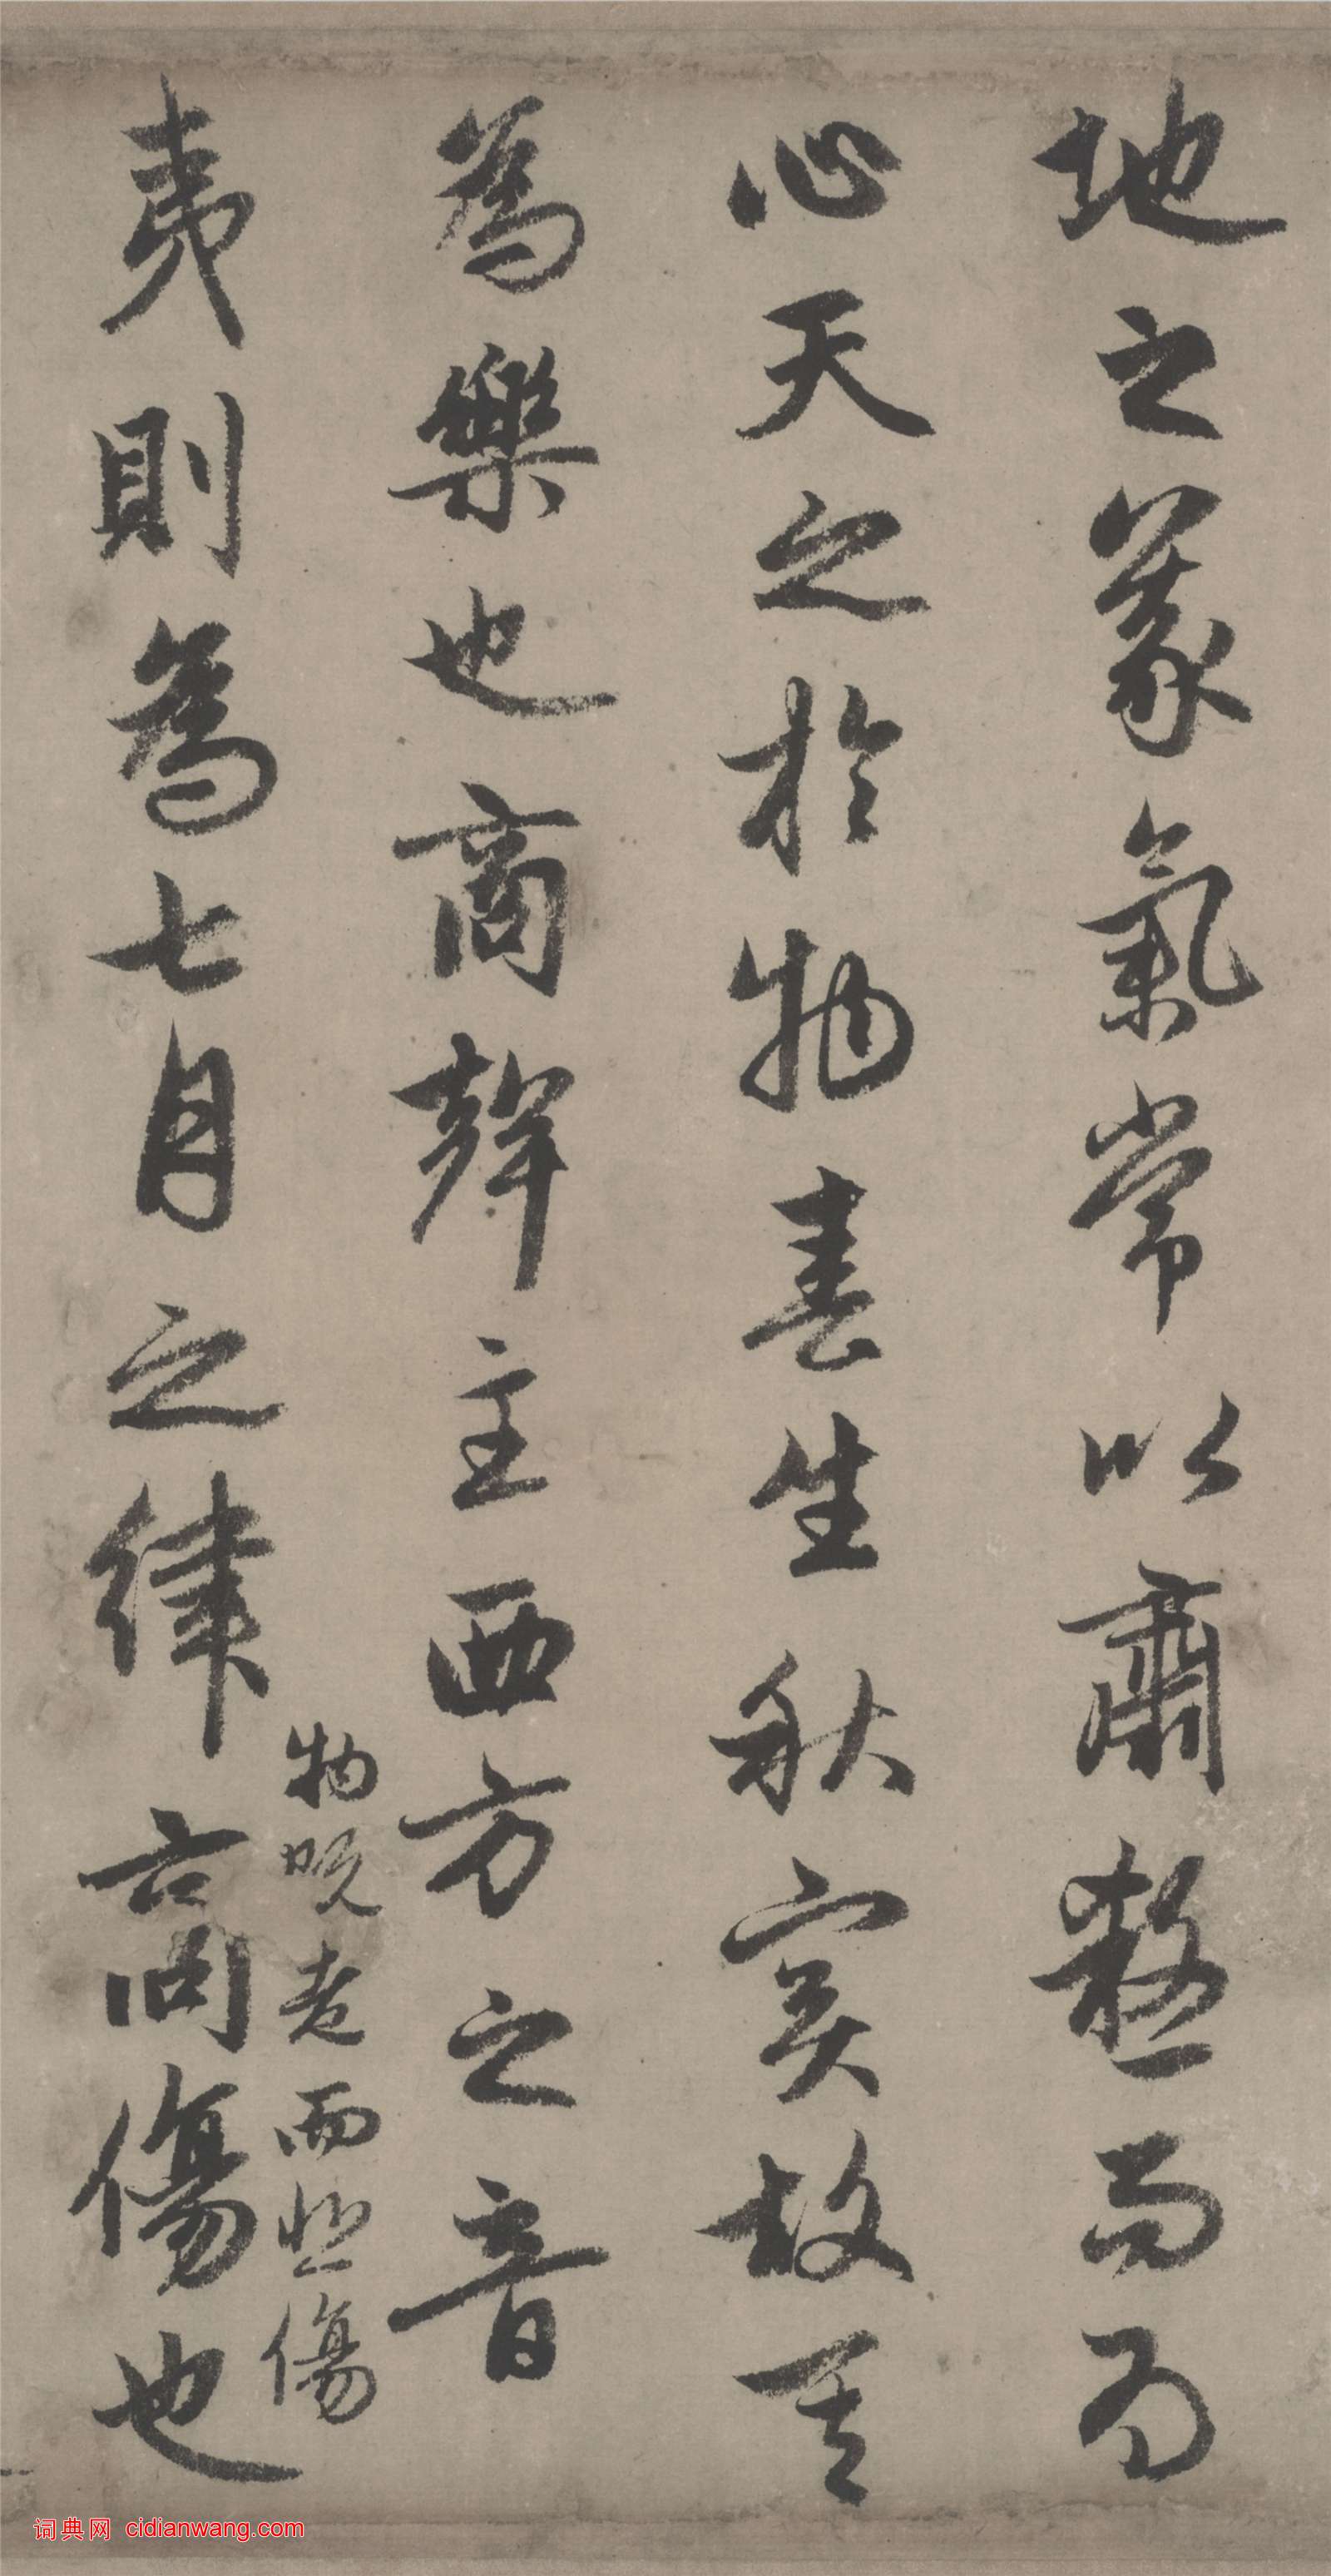 地之義氣常以肅煞而為
心天之於物春生秋實故其
為樂也商聲主西方之音
夷則為七月之律商傷也
物既老而悲傷
词典网 cidianwang.com